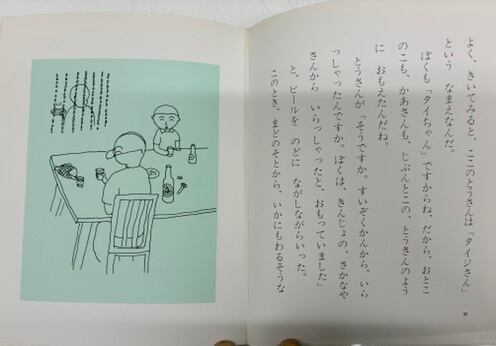 よく、きいてみると、ここのとうさんは「タイジさん」
という なまえなんだ。
ぼくも「タイちゃん」ですからね、だから、おとこ
のこも、かあさんも、じぶんとこの、とうさんのよう
に おもえたんだね。
とうさんが「そうですか。すいぞくかんから、いら
っしゃったんですか。ぼくは、きんじょの、さかなや
さんから いらっしゃったと、おもっていました」
と、ビールを のどに ながしながらいった。
このとき、まどのそとから、いかにもわるそうな